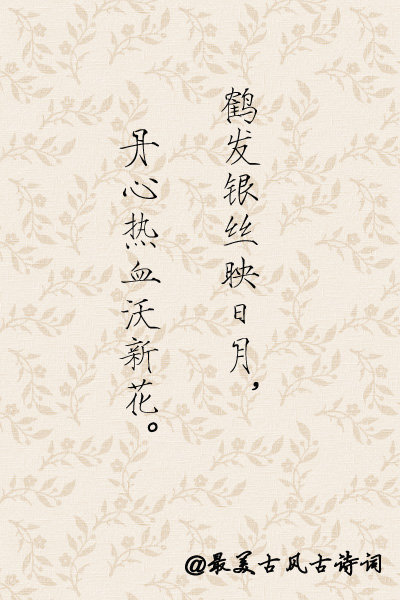 鹤发银丝映日月，
丹心热血沃新花。
@最美古风古诗词